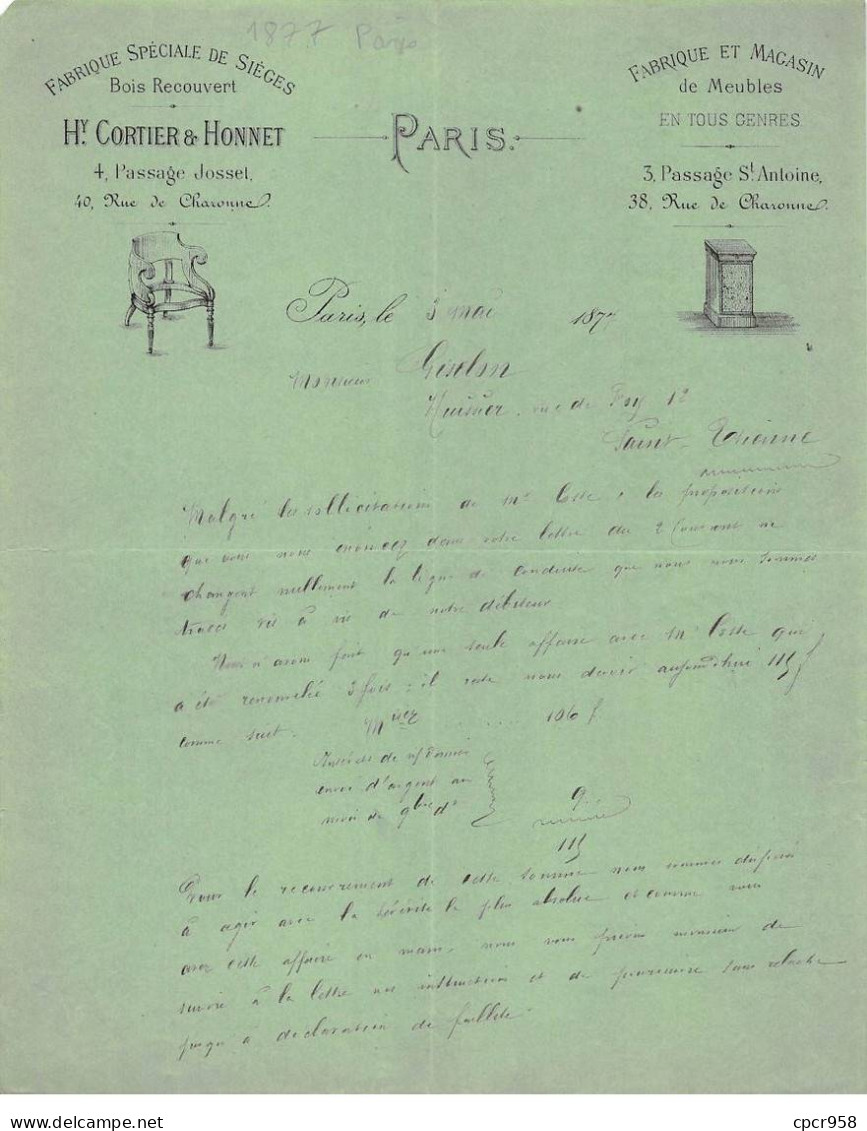 1877 Paris
FABRIQUE SPÉCIALE DE SIÈGES
Bois Recouvert
HY. CORTIER & HONNET
4, Passage Josset,
40, Rue de Charonne.
PARIS.
FABRIQUE ET MAGASIN
de Meubles
EN TOUS GENRES
3, Passage St. Antoine,
38, Rue de Charonne.
Paris, le 3 mai 1877
Monsieur
Huissier, rue de Foy 12
Saint-Etienne
Malgré les sollicitations de Mr & les propositions
que vous nous énoncez dans votre lettre du 2 Courant ne
changent nullement la ligne de conduite que nous nous sommes
tracée vis à vis de notre débiteur
Nous n'avons fait qu'une seule affaire avec Mr qui
a été renouvelée 3 fois; il reste nous devoir aujourd'hui 115f
comme suit. ..... 106 f
Intérêts de n/ dernier
envoi d'argent au
mois de 9bre dr
9..
115
Pour le recouvrement de cette somme nous sommes disposés
à agir avec la sévérité la plus absolue et comme vous
avez cette affaire en main, nous vous prions monsieur de
suivre à la lettre nos instructions et de poursuivre sans relache
jusqu'à déclaration de faillite.
cpcr958